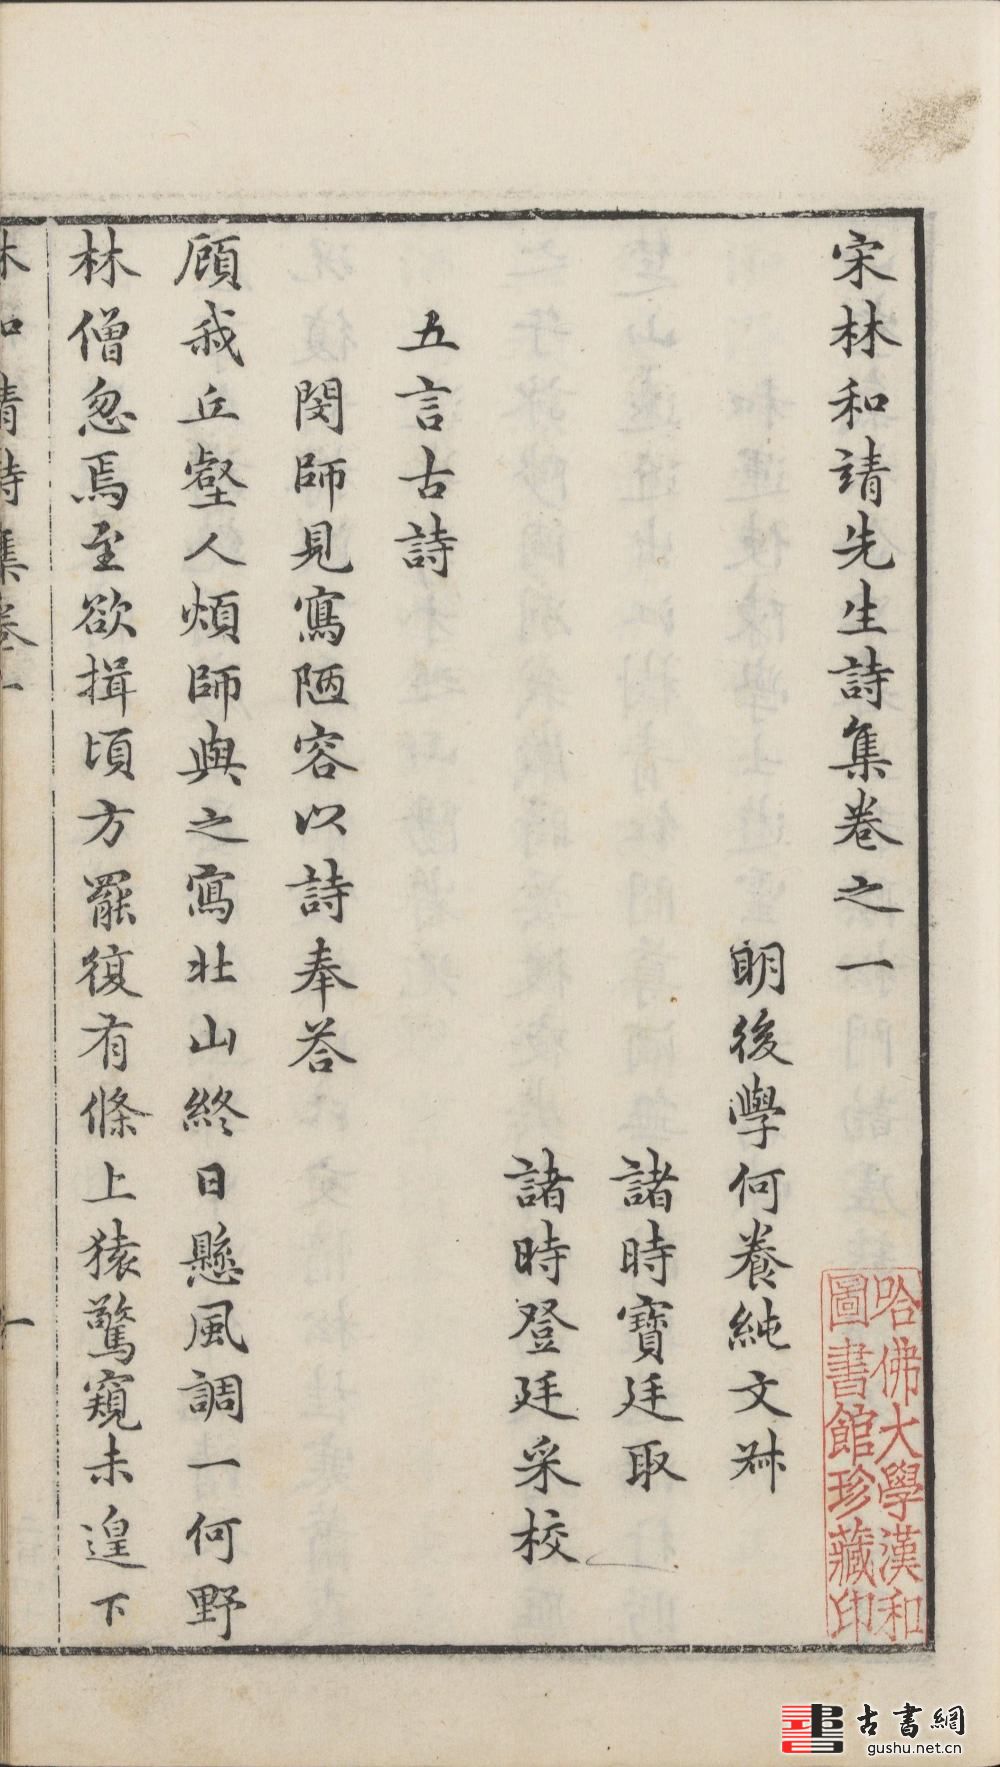 宋林和靖先生詩集卷之一
明後學何養純文叔
諸時寶廷取
諸時登廷采校
五言古詩
閔師見寫陋容以詩奉荅
顧我丘壑人煩師與之寫北山終日懸風調一何野
林僧忽焉至欲揖頃方罷復有條上猿驚窺未遑下
林和靖詩集卷一
一
哈佛大學漢和
圖書館珍藏印
古書網
gushu.net.cn